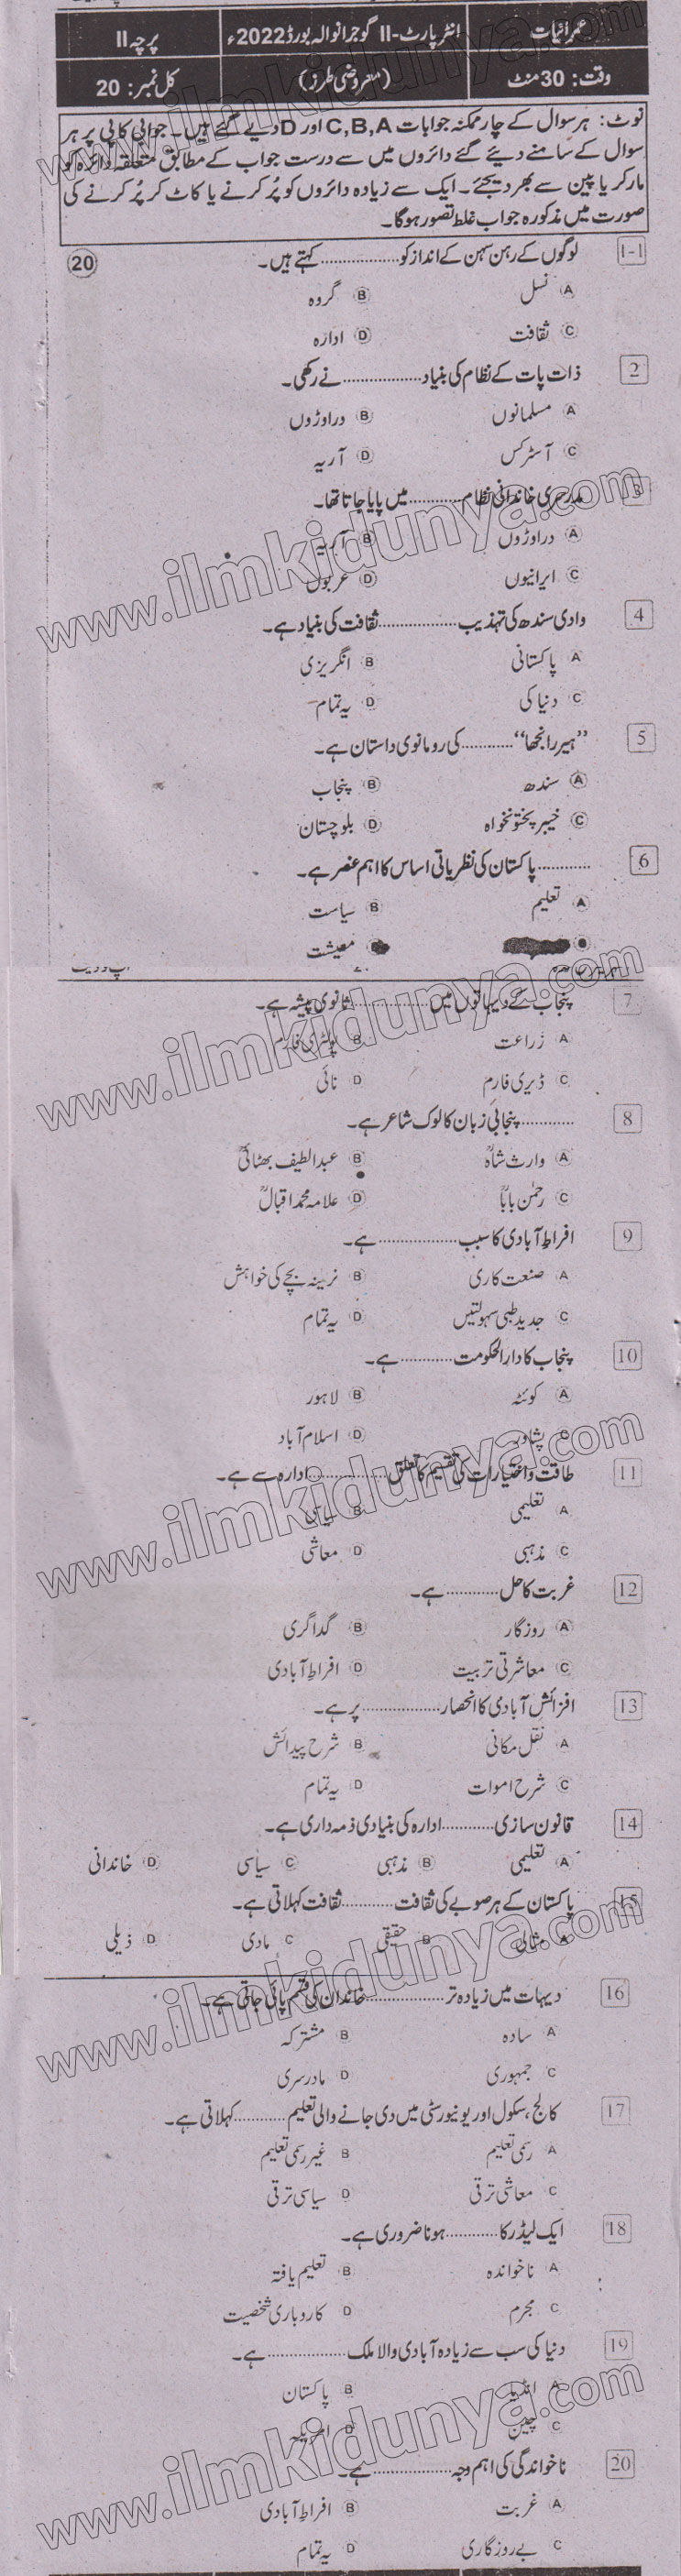 عمرانیات
انٹر پارٹ-II گوجرانوالہ بورڈ 2022ء
پرچہ II
وقت: 30 منٹ
(معروضی طرز)
کل نمبر: 20
نوٹ: ہر سوال کے چار ممکنہ جوابات C,B,A اور D دیے گئے ہیں۔ جوابی کاپی پر ہر
سوال کے سامنے دیئے گئے دائروں میں سے درست جواب کے مطابق متعلقہ دائرہ کو
مارکر یا پین سے بھر دیجئے۔ ایک سے زیادہ دائروں کو پُر کرنے یا کاٹ کر پُر کرنے کی
صورت میں مذکورہ جواب غلط تصور ہوگا۔
1-1 لوگوں کے رہن سہن کے انداز کو .................. کہتے ہیں۔ (20)
A نسل B گروہ
C ثقافت D ادارہ
2 ذات پات کے نظام کی بنیاد .................. نے رکھی۔
A مسلمانوں B دراوڑوں
C آسٹرکس D آریہ
3 مدرسری خاندانی نظام ............ میں پایا جاتا تھا۔
A دراوڑوں B آریہ
C ایرانیوں D عربوں
4 وادی سندھ کی تہذیب .................. ثقافت کی بنیاد ہے۔
A پاکستانی B انگریزی
C دنیا کی D یہ تمام
5 ”ہیر رانجھا“ ............ کی رومانوی داستان ہے۔
A سندھ B پنجاب
C خیبر پختونخواہ D بلوچستان
6 ............ پاکستان کی نظریاتی اساس کا اہم عنصر ہے۔
A تعلیم B سیاست
معیشت
7 پنجاب کے دیہاتوں میں .................. ثانوی پیشہ ہے۔
A زراعت B پولٹری فارم
C ڈیری فارم D نائی
8 ............ پنجابی زبان کا لوک شاعر ہے۔
A وارث شاہؒ B عبداللطیف بھٹائیؒ
C رحمٰن باباؒ D علامہ محمد اقبالؒ
9 افراطِ آبادی کا سبب .................. ہے۔
A صنعت کاری B نرینہ بچے کی خواہش
C جدید طبی سہولتیں D یہ تمام
10 پنجاب کا دارالحکومت ............ ہے۔
A کوئٹہ B لاہور
C پشاور D اسلام آباد
11 طاقت و اختیارات کی تقسیم کا تعلق .................. ادارہ سے ہے۔
A تعلیمی B سیاسی
C مذہبی D معاشی
12 غربت کا حل ............ ہے۔
A روزگار B گداگری
C معاشرتی تربیت D افراطِ آبادی
13 افزائشِ آبادی کا انحصار .................. پر ہے۔
A نقل مکانی B شرح پیدائش
C شرح اموات D یہ تمام
14 قانون سازی ............ ادارہ کی بنیادی ذمہ داری ہے۔
A تعلیمی B مذہبی C سیاسی D خاندانی
15 پاکستان کے ہر صوبے کی ثقافت ............ ثقافت کہلاتی ہے۔
A مثالی B حقیقی C مادی D ذیلی
16 دیہات میں زیادہ تر .................. خاندان کی قسم پائی جاتی ہے۔
A سادہ B مشترکہ
C جمہوری D مادرسری
17 کالج، سکول اور یونیورسٹی میں دی جانے والی تعلیم ............ کہلاتی ہے۔
A رسمی تعلیم B غیر رسمی تعلیم
C معاشی ترقی D سیاسی ترقی
18 ایک لیڈر کا ............ ہونا ضروری ہے۔
A ناخواندہ B تعلیم یافتہ
C مجرم D کاروباری شخصیت
19 دنیا کی سب سے زیادہ آبادی والا ملک .................. ہے۔
A انڈیا B پاکستان
C چین D امریکہ
20 ناخواندگی کی اہم وجہ .................. ہے۔
A غربت B افراطِ آبادی
C بے روزگاری D یہ تمام
www.ilmkidunya.com
www.ilmkidunya.com
www.ilmkidunya.com
www.ilmkidunya.com
www.ilmkidunya.com
www.ilmkidunya.com